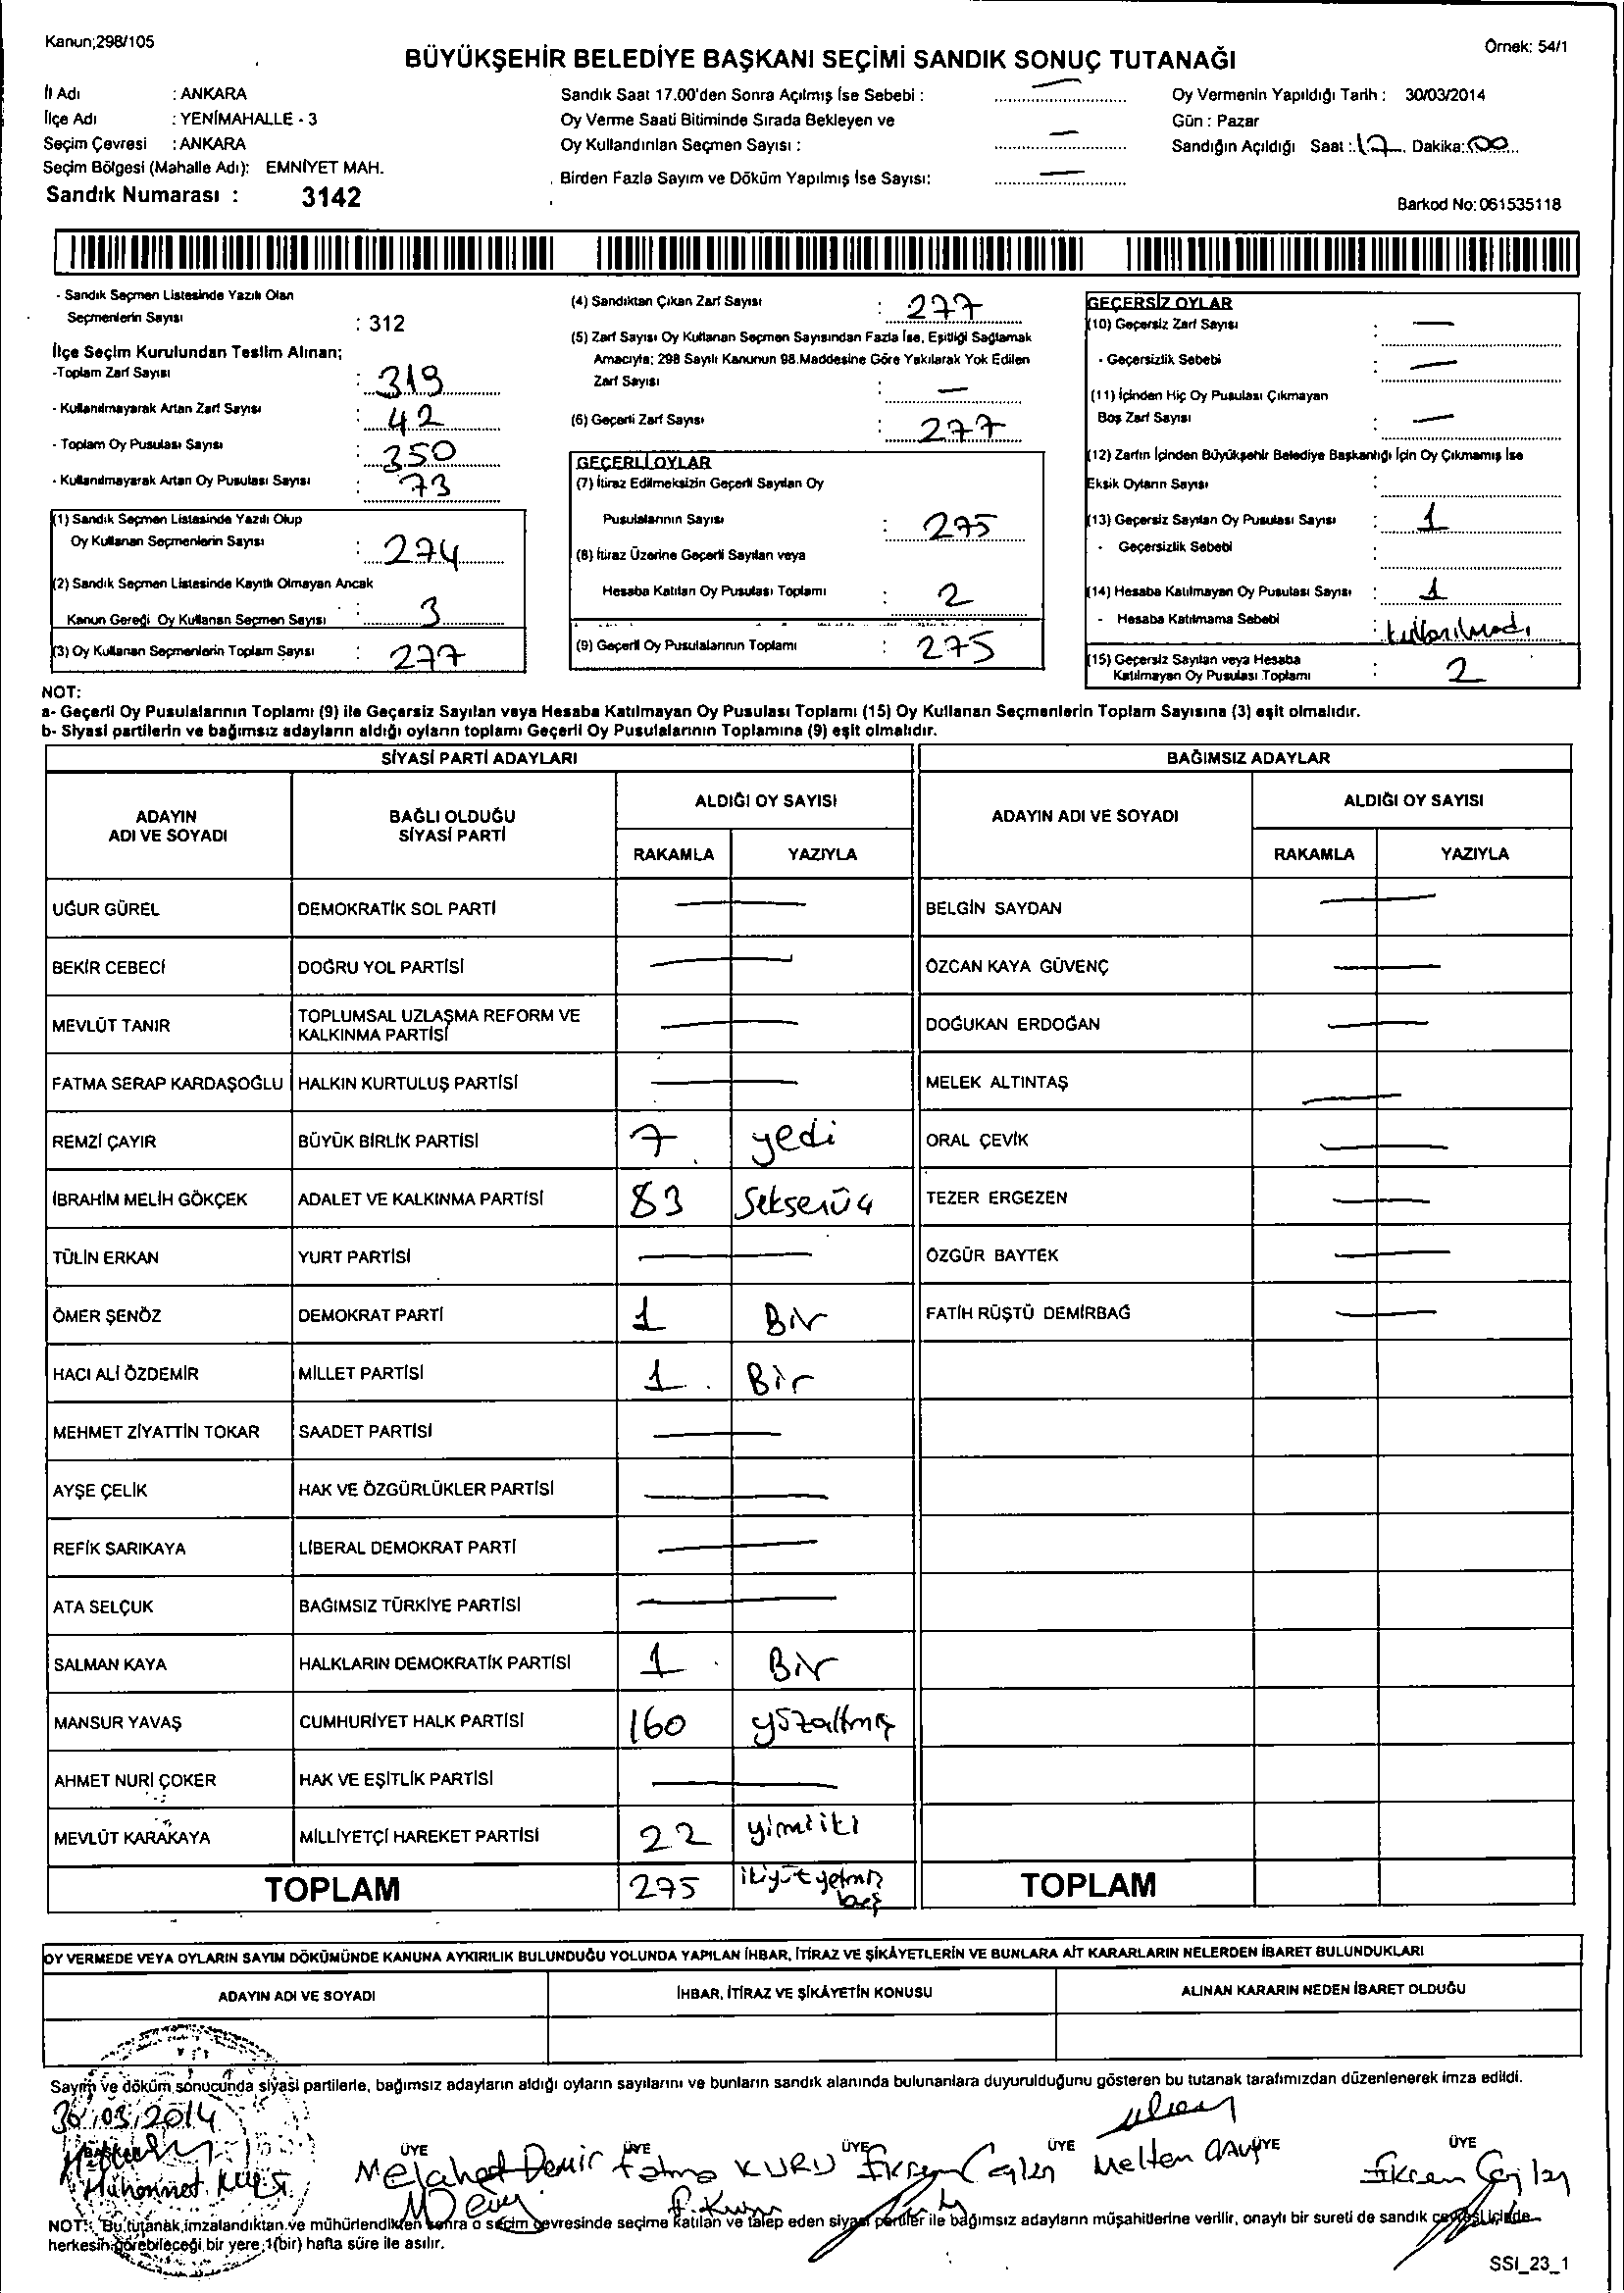 Kanun;298/105
Örnek: 54/1
BÜYÜKŞEHİR BELEDİYE BAŞKANI SEÇİMİ SANDIK SONUÇ TUTANAĞI
İl Adı : ANKARA
İlçe Adı : YENİMAHALLE - 3
Seçim Çevresi : ANKARA
Seçim Bölgesi (Mahalle Adı): EMNİYET MAH.
Sandık Numarası : 3142
Sandık Saat 17.00'den Sonra Açılmış İse Sebebi : —
Oy Verme Saati Bitiminde Sırada Bekleyen ve
Oy Kullandırılan Seçmen Sayısı : —
Birden Fazla Sayım ve Döküm Yapılmış İse Sayısı: —
Oy Vermenin Yapıldığı Tarih : 30/03/2014
Gün : Pazar
Sandığın Açıldığı Saat : 17 Dakika: 00
Barkod No: 061535118
- Sandık Seçmen Listesinde Yazılı Olan
Seçmenlerin Sayısı : 312
İlçe Seçim Kurulundan Teslim Alınan;
-Toplam Zarf Sayısı : 319
- Kullanılmayarak Artan Zarf Sayısı : 42
- Toplam Oy Pusulası Sayısı : 350
- Kullanılmayarak Artan Oy Pusulası Sayısı : 73
(1) Sandık Seçmen Listesinde Yazılı Olup
Oy Kullanan Seçmenlerin Sayısı : 274
(2) Sandık Seçmen Listesinde Kayıtlı Olmayan Ancak
Kanun Gereği Oy Kullanan Seçmen Sayısı : 3
(3) Oy Kullanan Seçmenlerin Toplam Sayısı : 277
(4) Sandıktan Çıkan Zarf Sayısı : 277
(5) Zarf Sayısı Oy Kullanan Seçmen Sayısından Fazla İse, Eşitliği Sağlamak
Amacıyla; 298 Sayılı Kanunun 98.Maddesine Göre Yakılarak Yok Edilen
Zarf Sayısı : —
(6) Geçerli Zarf Sayısı : 277
GEÇERLİ OYLAR
(7) İtiraz Edilmeksizin Geçerli Sayılan Oy
Pusulalarının Sayısı : 275
(8) İtiraz Üzerine Geçerli Sayılan veya
Hesaba Katılan Oy Pusulası Toplamı : 2
(9) Geçerli Oy Pusulalarının Toplamı : 275
GEÇERSİZ OYLAR
(10) Geçersiz Zarf Sayısı : —
- Geçersizlik Sebebi : —
(11) İçinden Hiç Oy Pusulası Çıkmayan
Boş Zarf Sayısı : —
(12) Zarfın İçinden Büyükşehir Belediye Başkanlığı İçin Oy Çıkmamış İse
Eksik Oyların Sayısı :
(13) Geçersiz Sayılan Oy Pusulası Sayısı : 1
- Geçersizlik Sebebi :
(14) Hesaba Katılmayan Oy Pusulası Sayısı : 1
- Hesaba Katılmama Sebebi : kullanılmadı
(15) Geçersiz Sayılan veya Hesaba
Katılmayan Oy Pusulası Toplamı : 2
NOT:
a- Geçerli Oy Pusulalarının Toplamı (9) ile Geçersiz Sayılan veya Hesaba Katılmayan Oy Pusulası Toplamı (15) Oy Kullanan Seçmenlerin Toplam Sayısına (3) eşit olmalıdır.
b- Siyasi partilerin ve bağımsız adayların aldığı oyların toplamı Geçerli Oy Pusulalarının Toplamına (9) eşit olmalıdır.
SİYASİ PARTİ ADAYLARI BAĞIMSIZ ADAYLAR
ADAYIN ADI VE SOYADI
BAĞLI OLDUĞU SİYASİ PARTİ
ALDIĞI OY SAYISI
RAKAMLA YAZIYLA
ADAYIN ADI VE SOYADI
ALDIĞI OY SAYISI
RAKAMLA YAZIYLA
UĞUR GÜREL DEMOKRATİK SOL PARTİ — BELGİN SAYDAN —
BEKİR CEBECİ DOĞRU YOL PARTİSİ — ÖZCAN KAYA GÜVENÇ —
MEVLÜT TANIR TOPLUMSAL UZLAŞMA REFORM VE KALKINMA PARTİSİ — DOĞUKAN ERDOĞAN —
FATMA SERAP KARDAŞOĞLU HALKIN KURTULUŞ PARTİSİ — MELEK ALTINTAŞ —
REMZİ ÇAYIR BÜYÜK BİRLİK PARTİSİ 7 yedi ORAL ÇEVİK —
İBRAHİM MELİH GÖKÇEK ADALET VE KALKINMA PARTİSİ 83 Seksenüç TEZER ERGEZEN —
TÜLİN ERKAN YURT PARTİSİ — ÖZGÜR BAYTEK —
ÖMER ŞENÖZ DEMOKRAT PARTİ 1 Bir FATİH RÜŞTÜ DEMİRBAĞ —
HACI ALİ ÖZDEMİR MİLLET PARTİSİ 1 Bir
MEHMET ZİYATTİN TOKAR SAADET PARTİSİ —
AYŞE ÇELİK HAK VE ÖZGÜRLÜKLER PARTİSİ —
REFİK SARIKAYA LİBERAL DEMOKRAT PARTİ —
ATA SELÇUK BAĞIMSIZ TÜRKİYE PARTİSİ —
SALMAN KAYA HALKLARIN DEMOKRATİK PARTİSİ 1 Bir
MANSUR YAVAŞ CUMHURİYET HALK PARTİSİ 160 yüzaltmış
AHMET NURİ ÇOKER HAK VE EŞİTLİK PARTİSİ —
MEVLÜT KARAKAYA MİLLİYETÇİ HAREKET PARTİSİ 22 yirmiiki
TOPLAM 275 ikiyüzyetmiş beş TOPLAM
OY VERMEDE VEYA OYLARIN SAYIM DÖKÜMÜNDE KANUNA AYKIRILIK BULUNDUĞU YOLUNDA YAPILAN İHBAR, İTİRAZ VE ŞİKÂYETLERİN VE BUNLARA AİT KARARLARIN NELERDEN İBARET BULUNDUKLARI
ADAYIN ADI VE SOYADI İHBAR, İTİRAZ VE ŞİKÂYETİN KONUSU ALINAN KARARIN NEDEN İBARET OLDUĞU
Sayım ve döküm sonucunda siyasi partilerle, bağımsız adayların aldığı oyların sayılarını ve bunların sandık alanında bulunanlara duyurulduğunu gösteren bu tutanak tarafımızdan düzenlenerek imza edildi.
30.03.2014
BAŞKAN ÜYE ÜYE ÜYE ÜYE ÜYE ÜYE
Melahat Demir Fatma KURU Meltem
NOT: Bu tutanak,imzalandıktan ve mühürlendikten sonra o seçim çevresinde seçime katılan ve talep eden siyasi partiler ile bağımsız adayların müşahitlerine verilir, onaylı bir sureti de sandık çevresi içinde
herkesin görebileceği bir yere 1(bir) hafta süre ile asılır.
SSI_23_1